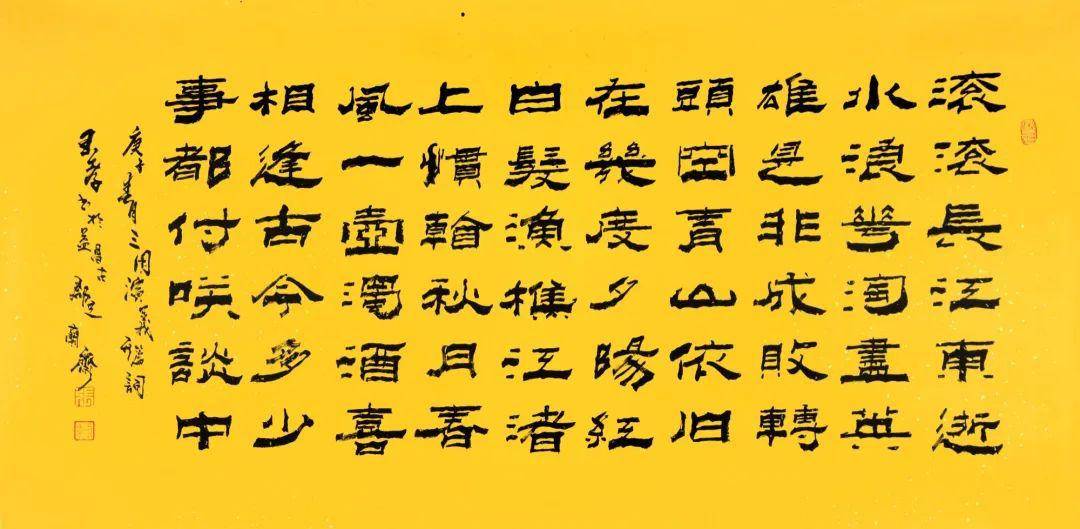 滚滚長江東逝
水浪花淘盡英
雄是非成敗轉
頭空青山依旧
在幾度夕陽紅
白髮漁樵江渚
上慣看秋月春
風一壺濁酒喜
相逢古今多少
事都付咲談中
庚子春月三国演義詞
書於益昌古齋